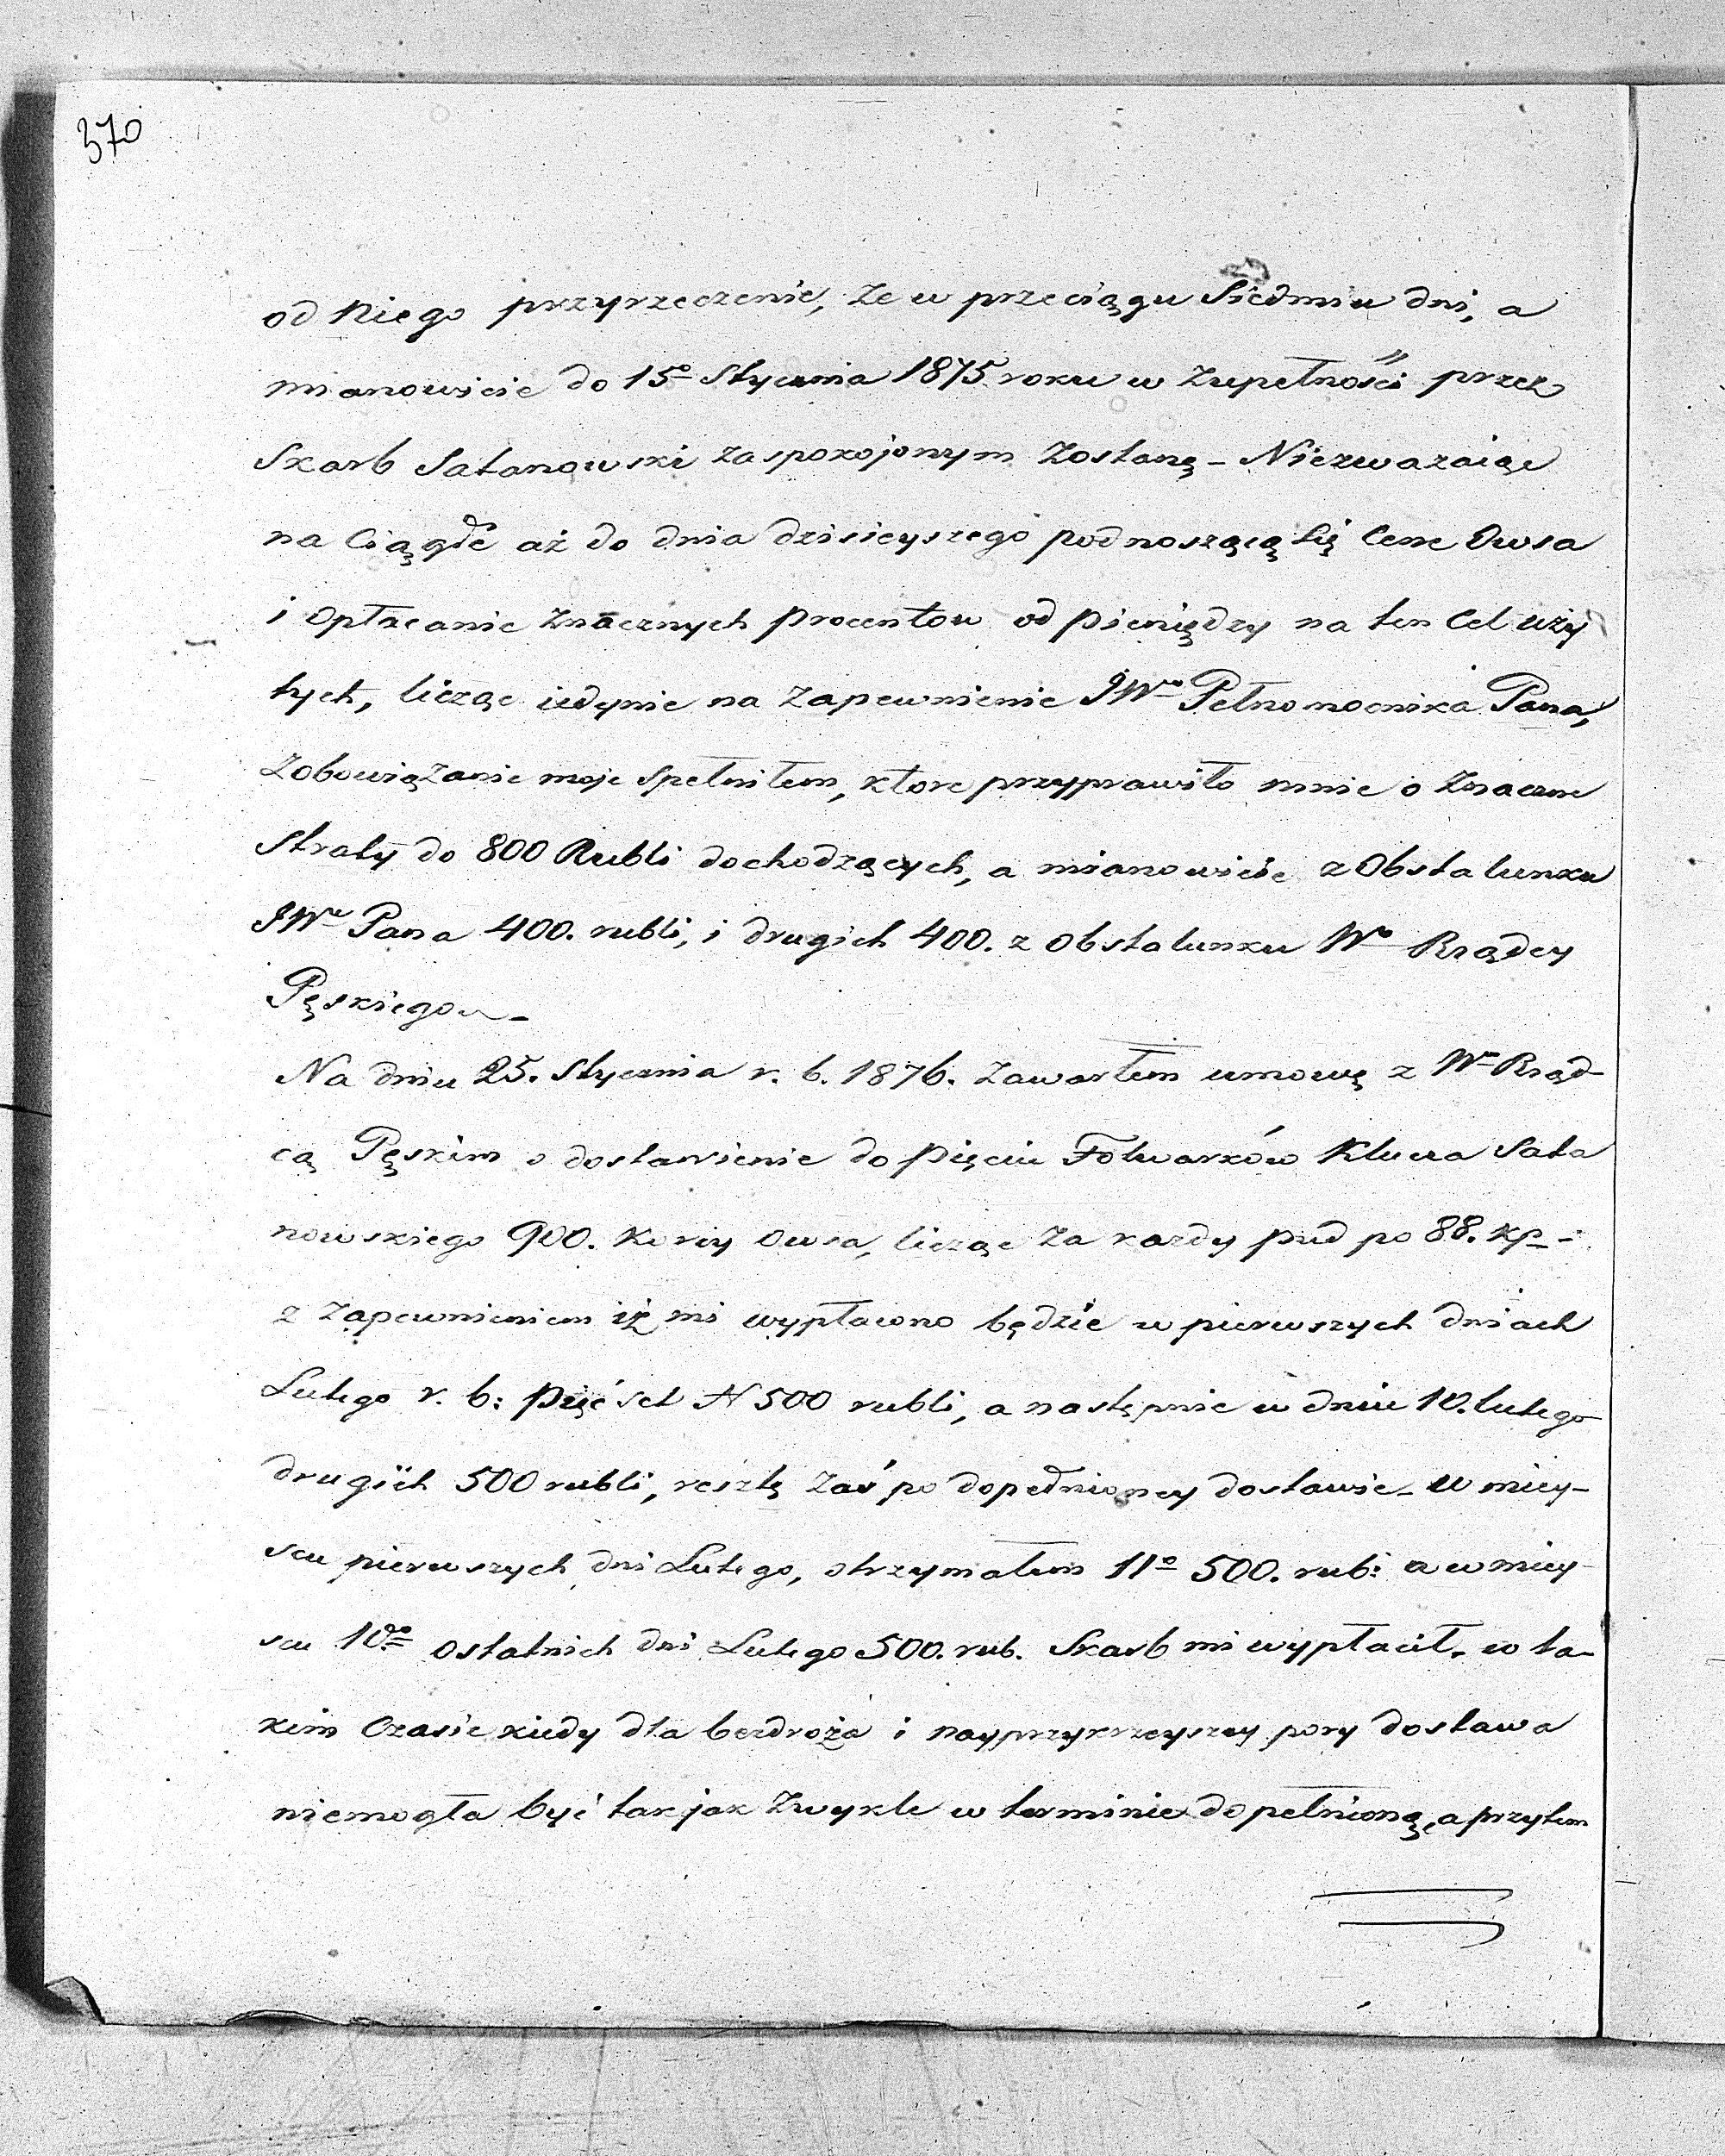 370
od Niego przyrzeczenie, że w przeciągu Siedmiu dni, a
mianowicie do 15º Stycznia 1875 roku w zupełności przez
Skarb Satanowski zaspokojonym zostanę – Niezważaiąc
na Ciągłe aż do dnia dzisieyszego podnoszącą się Cene Owsa
i Opłacanie znacznych procentow od pieniędzy na ten Cel uży
tych, licząc iedynie na zapewnienie JWo Pełnomocnika Pana,
zobowiązanie moje spełniłem, ktore przyprawiło mnie o znaczne
straty do 800 Rubli dochodzących, a mianowicie z Obstalunku
JWo Pana 400. rubli, i drugich 400. z obstalunku Wo Rządcy
Pęskiego –
Na dniu 25. Stycznia r. b. 1876. zawarłem umowę z Wm Rząd-
cą Pęskim o dostawienie do pięciu Folwarków Klucza Sata
nowskiego 900. Korcy Owsa, licząc za każdy pud po 88. kp –
z zapewnieniem iż mi wypłacono będzie w pierwszych dniach
Lutego r. b: pięćset N 500 rubli, a następnie w dniu 10. lutego
drugich 500 rubli, resztę zaś po dopełnioney dostawie – w miey-
scu pierwszych dni Lutego, otrzymałem 11º 500. rub: a w miey-
scu 10go ostatnich dni Lutego 500. rub. Skarb mi wypłacił. w ta-
kim Czasie kiedy dla bezdroża i nayprzykrzeyszey pory dostawa
niemogła być tak jak zwykle w terminie dopełnioną, a przytem